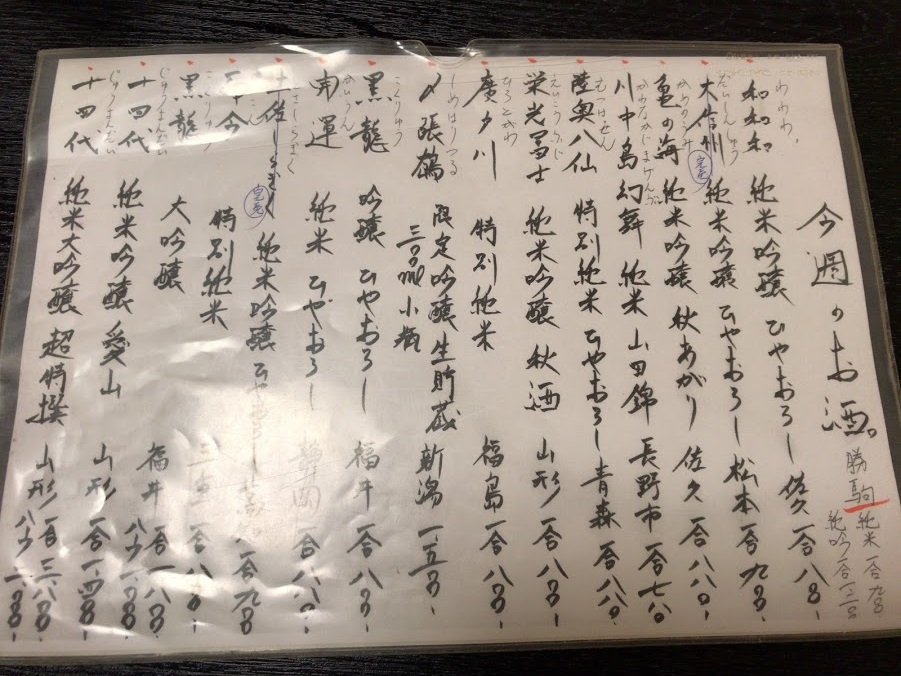 今週のお酒。
勝駒 純米 一合 九〇〇
純吟 一合 一二〇〇
わわわ
和和和 純米吟醸 ひやおろし 佐久 一合 八〇〇-
だいしんしゅう
大信州 純米吟醸 ひやおろし 松本 一合 九〇〇-
完売
かめのうみ
亀の海 純米吟醸 秋あがり 佐久 一合 八八〇-
かわなかじまげんぶ
川中島 幻舞 純米 山田錦 長野市 一合 七八〇
むつはっせん
陸奥八仙 特別純米 ひやおろし 青森 一合 八八〇-
えいこうふじ
栄光冨士 純米吟醸 秋酒 山形 一合 八〇〇-
ひろとがわ
廣戸川 特別純米 福島 一合 八〇〇-
しめはりつる
〆張鶴 限定吟醸生貯蔵 新潟 一五〇〇-
三〇〇ml小瓶
こくりゅう
黒龍 吟醸 ひやおろし 福井 一合 八〇〇-
かいうん
開運 純米 ひやおろし 静岡 一合 八八〇-
土佐しらぎく 純米吟醸 ひやおろし 一合 九〇〇-
完売
特別純米 三重 一合 八〇〇-
黒龍 大吟醸 福井 一合 一八〇〇-
じゅうよんだい
十四代 純米吟醸 愛山 山形 一合 一四〇〇-
じゅうよんだい
十四代 純米大吟醸 超特撰 山形 一合 三八〇〇-